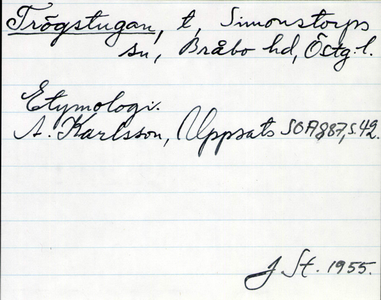 Trögstugan, t, Simonstorps
sn, Bråbo hd, Östg. l.
Etymologi.
A. Karlsson, Uppsats SOA 887, s. 42.
J St. 1955.